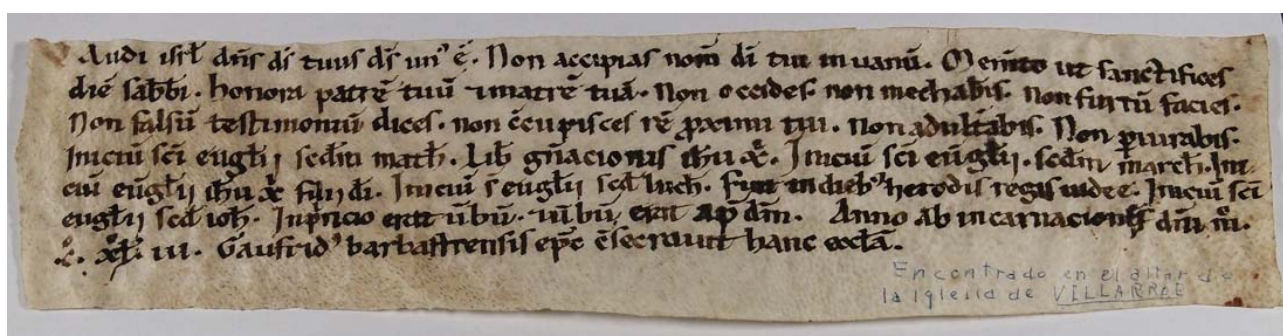 Audi isrl̄ dn̄s ds̄ tuus ds̄ unꝰ ē. Non accipias nom̄ dī tui in uanū. Mem̄to ut sanctifices
diē sabb̄i. honora patrē tuū ⁊ matrē tuā. Non occides. non mechab̄is. Non furtū facies.
Non falsū testimoniū dices. non c̄cupisces rē ꝓximi tui. Non adult̄abis. Non ꝑiurabis.
Iniciū sc̄i eūgl̄ij sedm̄ math̄. Lib̄ gn̄acionis ih̄u xp̄i. Iniciū sc̄i eūgl̄ij. sedm̄ march̄. Ini
ciū eūgl̄ij ih̄u xp̄i filij dī. Iniciū s̄ eūgl̄ij sed̄ luch̄. Fuit in diebꝰ herodis regis iudee. Iniciū sc̄i
eugl̄ij sed̄ ioh̄. In pͥncipio erat ūbū. ⁊ ūbū erat ap̄ dm̄. Anno ab incarnacione dn̄i m̄.
c̄. xl. iii. Gaufridꝰ barbastrensis ep̄c c̄secrauit hanc eccl̄ā.
Encontrado en el altar de
la Iglesia de VILLARRUE